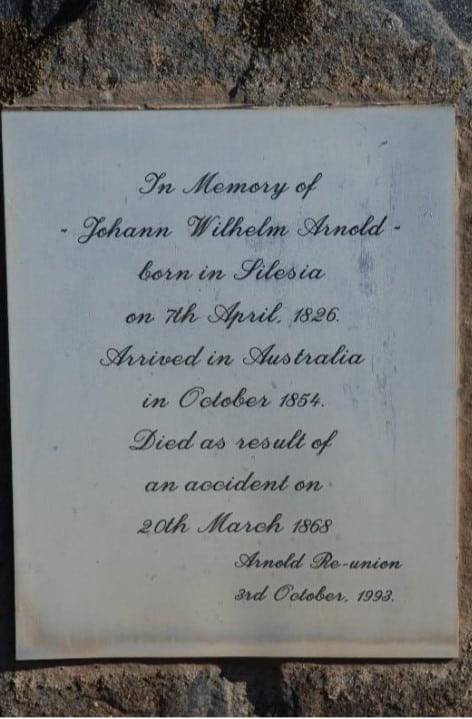 In Memory of
- Johann Wilhelm Arnold -
born in Silesia
on 7th April, 1826.
Arrived in Australia
in October 1854.
Died as result of
an accident on
20th March 1868
Arnold Re-union
3rd October, 1993.